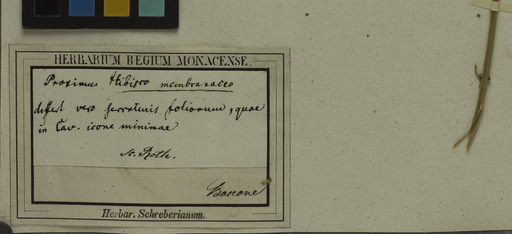 HERBARIUM REGIUM MONACENSE.
Proximus Hibisco membranaceo
differt vero serraturis foliorum, quae
in Cav. icone minimae
Roth.
Herbar. Schreberianum.